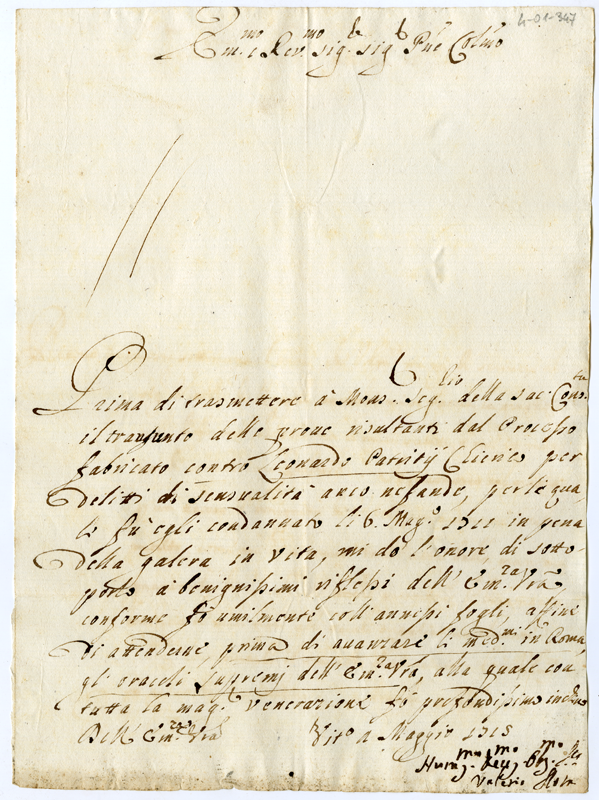 4-01-347
Em.mo e Rev.mo Sig.r Sig.r P.ne Col.mo
Prima di trasmettere à Mons. Seg.rio della Sac. Cons.ta
il transunto delle proue risultanti dal Processo
fabricato contro Leonardo Patritij Chierico per
delitti di sensualità anco nefande, per le qua
li fù egli condannato li 6. Mag.o 1711 in pena
della galera in vita, mi dò l'onore di sotto-
porlo à benignissimi riflessi dell' Em.za Vra,
conforme fò umilmente coll' annessi fogli, affine
di attenderne, prima di auanzare li med.mi in Roma,
gl' oracoli supremj dell' Em.za Vra, alla quale con
tutta la mag.r venerazione fò profondissimo inchino
Dell' Em.za Vra
Vit.o a Maggio 1715
Humil.mo Deu.mo Obl.mo Ser.
Valerio